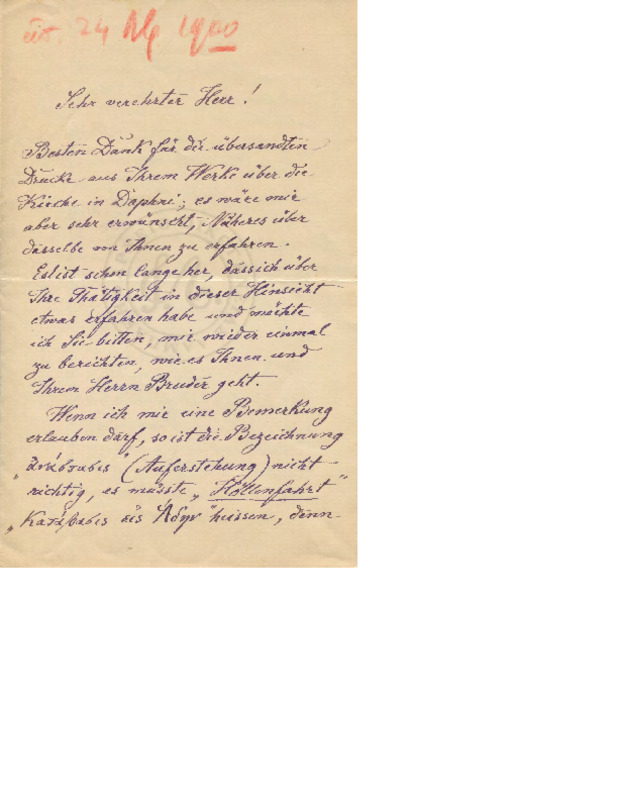 24 1900
Sehr verehrter Herr!
Besten Dank für die übersandten
Drucke aus Ihrem Werke über die
Kirche in Daphni; es wäre mir
aber sehr erwünscht, Näheres über
dasselbe von Ihnen zu erfahren.
Es ist schon lange her, dass ich über
Ihre Thätigkeit in dieser Hinsicht
etwas erfahren habe und möchte
ich Sie bitten, mir wieder einmal
zu berichten, wie es Ihnen und
Ihrem Herrn Bruder geht.
Wenn ich mir eine Bemerkung
erlauben darf, so ist die Bezeichnung
„ἀνάβασις" (Auferstehung) nicht
richtig, es müsste „Höllenfahrt"
„Κατάβασις εἰς Ἅδην" heissen, denn